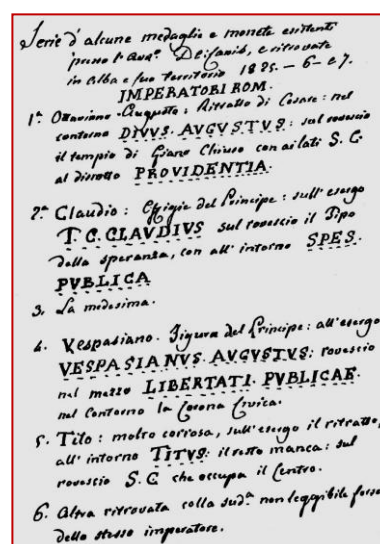 Serie d'alcune medaglie e monete esistenti
presso l'Avv.º Deicanis, e ritrovate
in Alba e suo territorio 1825. - 6 - e 7.
IMPERATORI ROM.
1ª Ottaviano Augusto: Ritratto di Cesare: nel
contorno DIVUS. AVGVSTVS: sul rovescio
il tempio di Giano Chiuso con ai lati S. C.
al disotto PROVIDENTIA.
2ª Claudio: Effigie del Principe: sull'esergo
T. C. CLAVDIVS sul rovescio il Tipo
della speranza, con all'intorno SPES.
PVBLICA
3. La medesima.
4. Vespasiano. Figura del Principe: all'esergo
VESPASIANVS. AVGVSTVS: rovescio
nel mezzo LIBERTATI. PVBLICAE.
nel Contorno la Corona Civica.
5. Tito: molto corrosa, sull'esergo il ritratto,
all'intorno TITVS: il resto manca: sul
rovescio S. C che occupa il Centro.
6. Altra ritrovata colla sudª non leggibile forse
dello stesso imperatore.